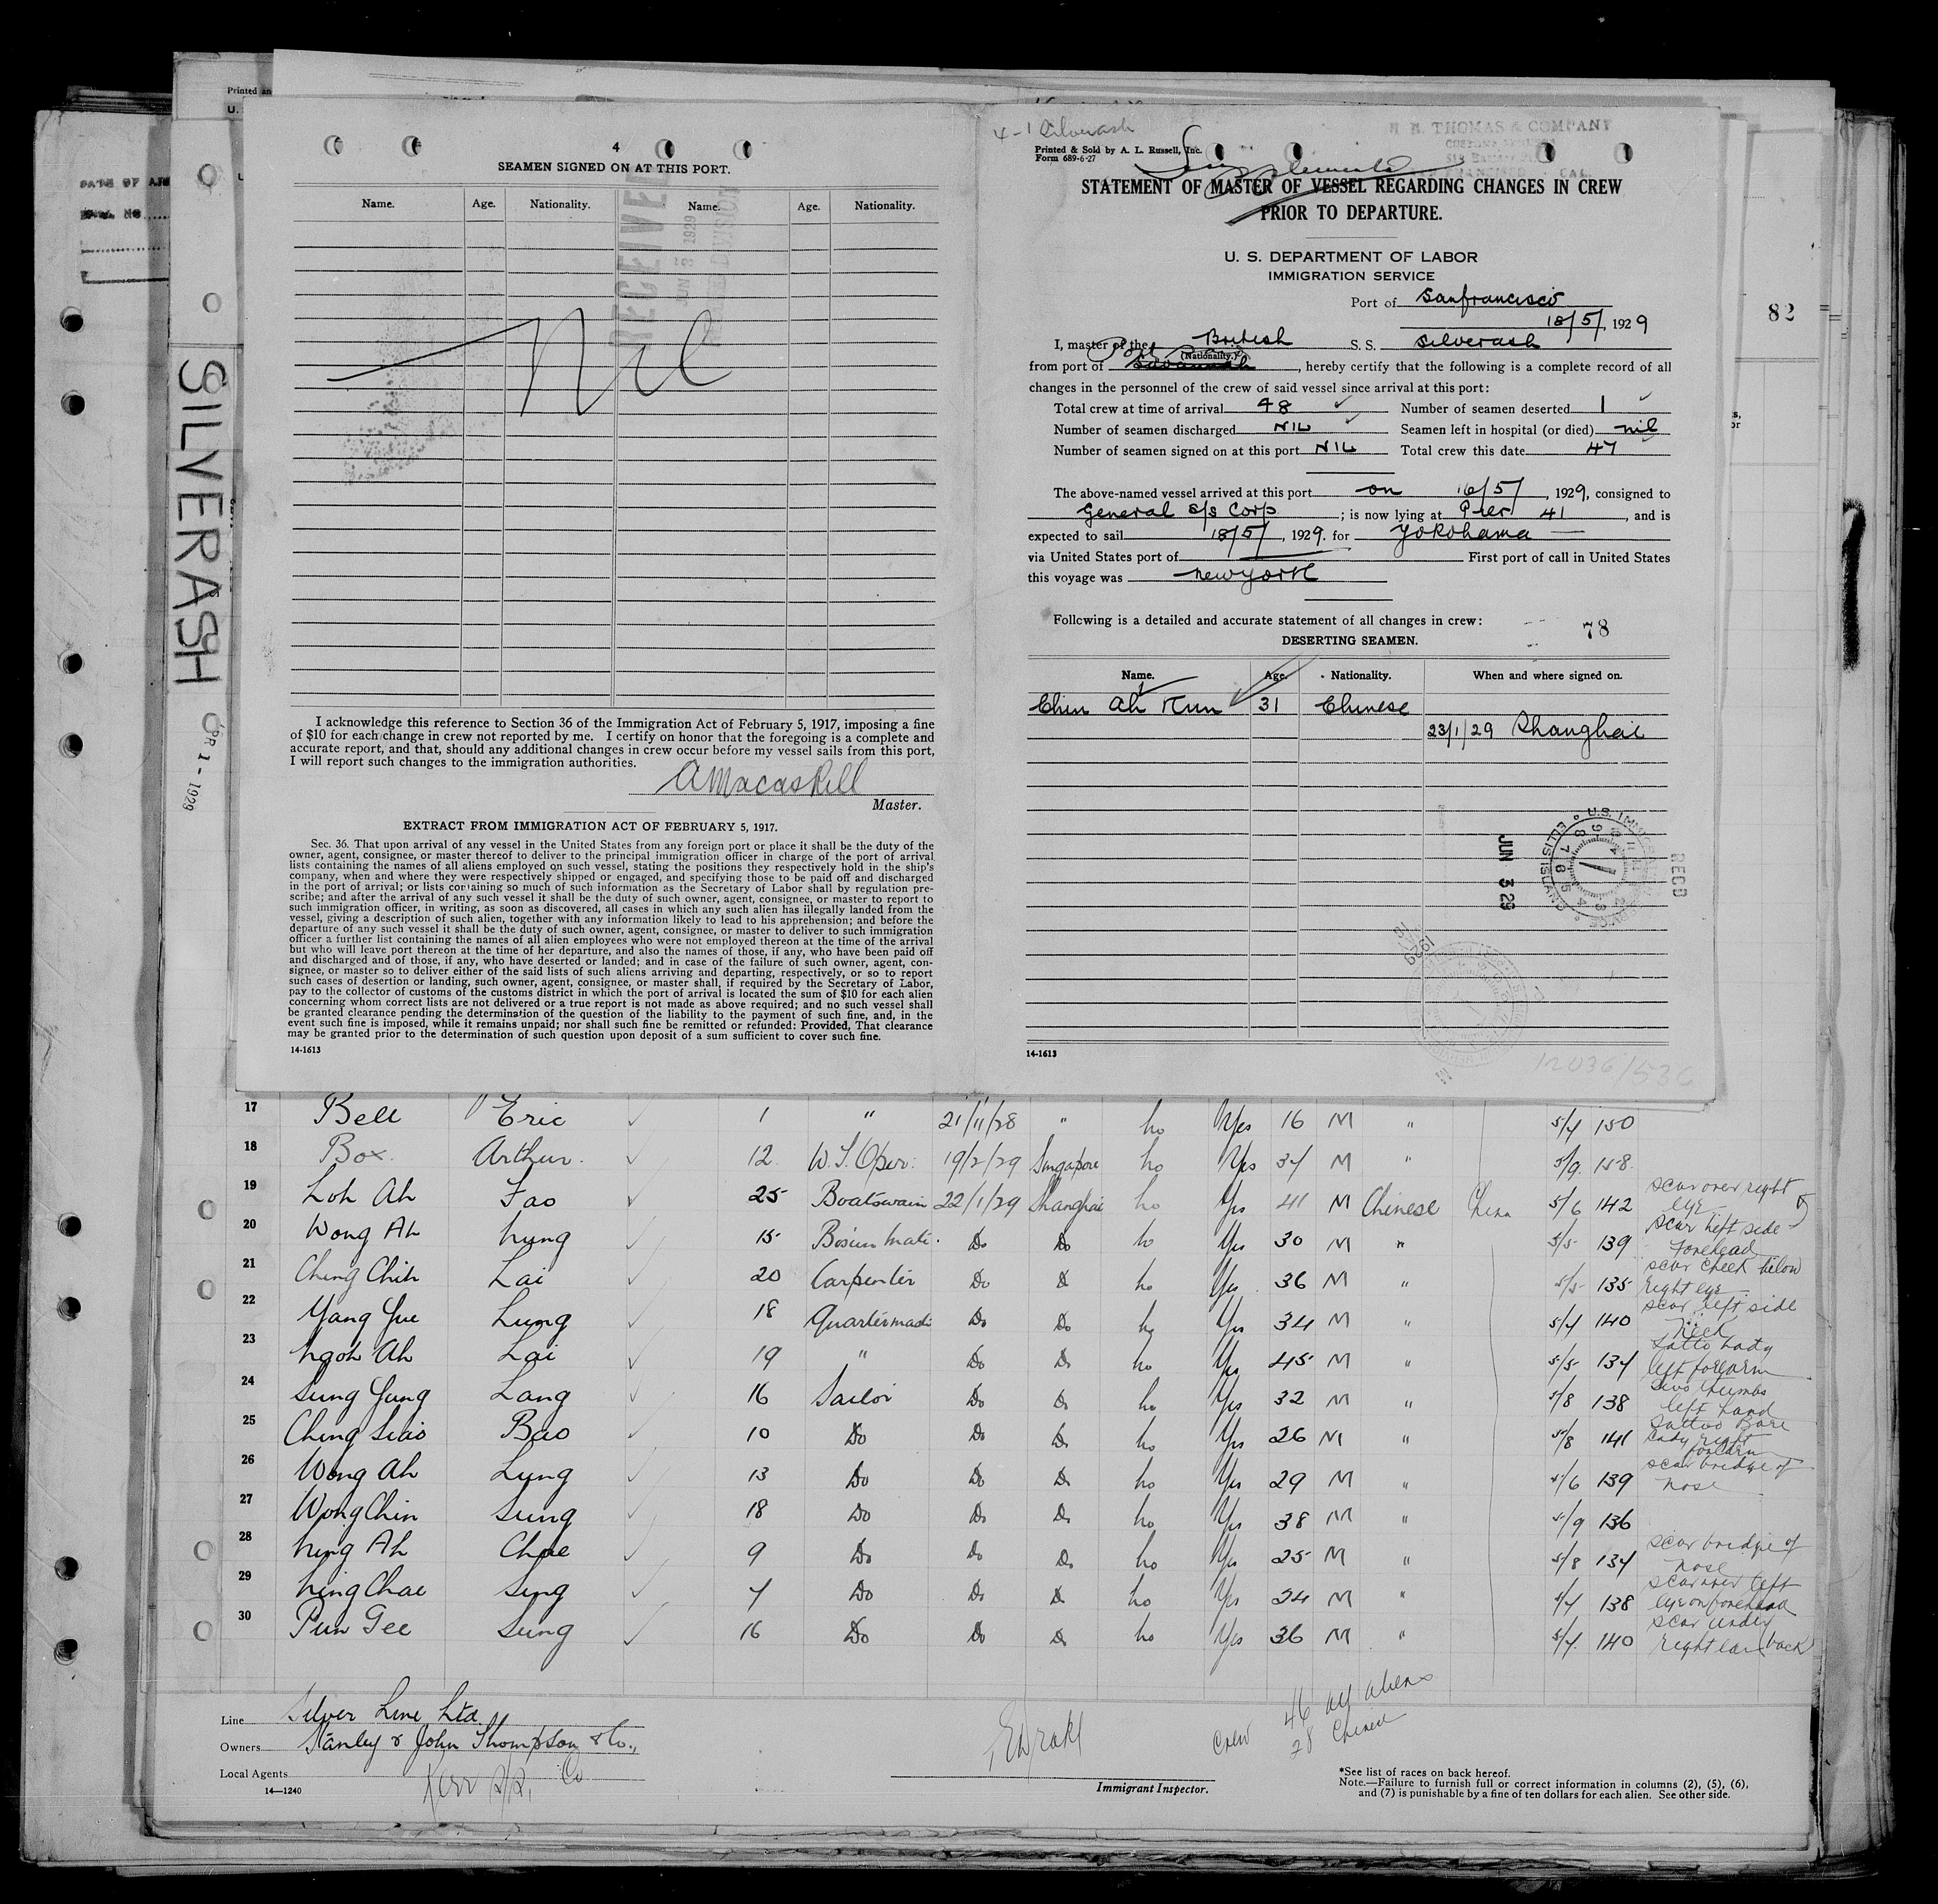 DATE OF
Printed an
U.
SILVERASH
APR 1 - 1929
82
4
SEAMEN SIGNED ON AT THIS PORT.
Name. Age. Nationality. Name. Age. Nationality.
RECEIVED
JUN 3 1929
Nil
I acknowledge this reference to Section 36 of the Immigration Act of February 5, 1917, imposing a fine
of $10 for each change in crew not reported by me. I certify on honor that the foregoing is a complete and
accurate report, and that, should any additional changes in crew occur before my vessel sails from this port,
I will report such changes to the immigration authorities.
AMacaskill
Master.
EXTRACT FROM IMMIGRATION ACT OF FEBRUARY 5, 1917.
Sec. 36. That upon arrival of any vessel in the United States from any foreign port or place it shall be the duty of the
owner, agent, consignee, or master thereof to deliver to the principal immigration officer in charge of the port of arrival
lists containing the names of all aliens employed on such vessel, stating the positions they respectively hold in the ship's
company, when and where they were respectively shipped or engaged, and specifying those to be paid off and discharged
in the port of arrival; or lists containing so much of such information as the Secretary of Labor shall by regulation pre-
scribe; and after the arrival of any such vessel it shall be the duty of such owner, agent, consignee, or master to report to
such immigration officer, in writing, as soon as discovered, all cases in which any such alien has illegally landed from the
vessel, giving a description of such alien, together with any information likely to lead to his apprehension; and before the
departure of any such vessel it shall be the duty of such owner, agent, consignee, or master to deliver to such immigration
officer a further list containing the names of all alien employees who were not employed thereon at the time of the arrival
but who will leave port thereon at the time of her departure, and also the names of those, if any, who have been paid off
and discharged and of those, if any, who have deserted or landed; and in case of the failure of such owner, agent, con-
signee, or master so to deliver either of the said lists of such aliens arriving and departing, respectively, or so to report
such cases of desertion or landing, such owner, agent, consignee, or master shall, if required by the Secretary of Labor,
pay to the collector of customs of the customs district in which the port of arrival is located the sum of $10 for each alien
concerning whom correct lists are not delivered or a true report is not made as above required; and no such vessel shall
be granted clearance pending the determination of the question of the liability to the payment of such fine, and, in the
event such fine is imposed, while it remains unpaid; nor shall such fine be remitted or refunded: Provided, That clearance
may be granted prior to the determination of such question upon deposit of a sum sufficient to cover such fine.
14-1613
4-1 Silverash
Printed & Sold by A. L. Russell, Inc.
Form 689-6-27
THOMAS & COMPANY
CAL.
Supplemental
STATEMENT OF MASTER OF VESSEL REGARDING CHANGES IN CREW
PRIOR TO DEPARTURE.
U. S. DEPARTMENT OF LABOR
IMMIGRATION SERVICE
Port of Sanfrancisco
18/5/, 1929
I, master of the British S. S. Silverash
(Nationality.)
from port of Savannah, hereby certify that the following is a complete record of all
changes in the personnel of the crew of said vessel since arrival at this port:
Total crew at time of arrival 48 Number of seamen deserted 1
Number of seamen discharged NIL Seamen left in hospital (or died) nil
Number of seamen signed on at this port NIL Total crew this date 47
The above-named vessel arrived at this port on 16/5/, 1929, consigned to
General S/S Corp; is now lying at Pier 41, and is
expected to sail 18/5/, 1929. for Yokohama
via United States port of First port of call in United States
this voyage was newyork
Following is a detailed and accurate statement of all changes in crew:
78
DESERTING SEAMEN.
Name. Age. Nationality. When and where signed on.
Chin Ah Kun 31 Chinese
23/1/29 Shanghai
JUN 3 29
RECD
U.S. IMMIGRATION SERVICE ELLIS ISLAND
1929
14-1613
12036/536
17 Bell Eric 1 " 21/11/28 " no Yes 16 M " 5/4 150
18 Box Arthur. 12 W.T. Oper: 19/2/29 Singapore no Yes 34 M " 5/9 158
19 Loh Ah Fao 25 Boatswain 22/1/29 Shanghai no Yes 41 M Chinese China 5/6 142 scar over right eye
20 Wong Ah nung 15 Bosun Mate. Do Do no Yes 30 M " 5/5 139 scar left side Forehead
21 Ching Chih Lai 20 Carpenter Do Do no Yes 36 M " 5/5 135 scar cheek below right eye
22 Yang Yue Lung 18 Quartermaster Do Do no Yes 34 M " 5/4 140 scar left side neck
23 ngoh Ah Lai 19 " Do Do no Yes 45 M " 5/5 134 Tatto Lady left forearm
24 Sung Yung Lang 16 Sailor Do Do no Yes 32 M " 5/8 138 two thumbs left hand
25 Ching Siao Bao 10 Do Do Do no Yes 26 M " 5/8 141 Tattoo Bare Lady right forearm
26 Wong Ah Lung 13 Do Do Do no Yes 29 M " 5/6 139 scar bridge of nose
27 Wong Chin Sung 18 Do Do Do no Yes 38 M " 5/9 136
28 ning Ah Choe 9 Do Do Do no Yes 25 M " 5/8 134 scar bridge of nose
29 ning Chae Sing 4 Do Do Do no Yes 24 M " 5/4 138 scar over left eye on forehead
30 Pun Gee Sung 16 Do Do Do no Yes 36 M " 5/4 140 scar under right ear (back
Line Silver Line Ltd.
Owners Stanley & John Thompson & Co.,
Local Agents Kerr S/S, Co
14—1240
Immigrant Inspector.
Crew 46 all aliens
28 Chinese
*See list of races on back hereof.
Note.—Failure to furnish full or correct information in columns (2), (5), (6),
and (7) is punishable by a fine of ten dollars for each alien. See other side.